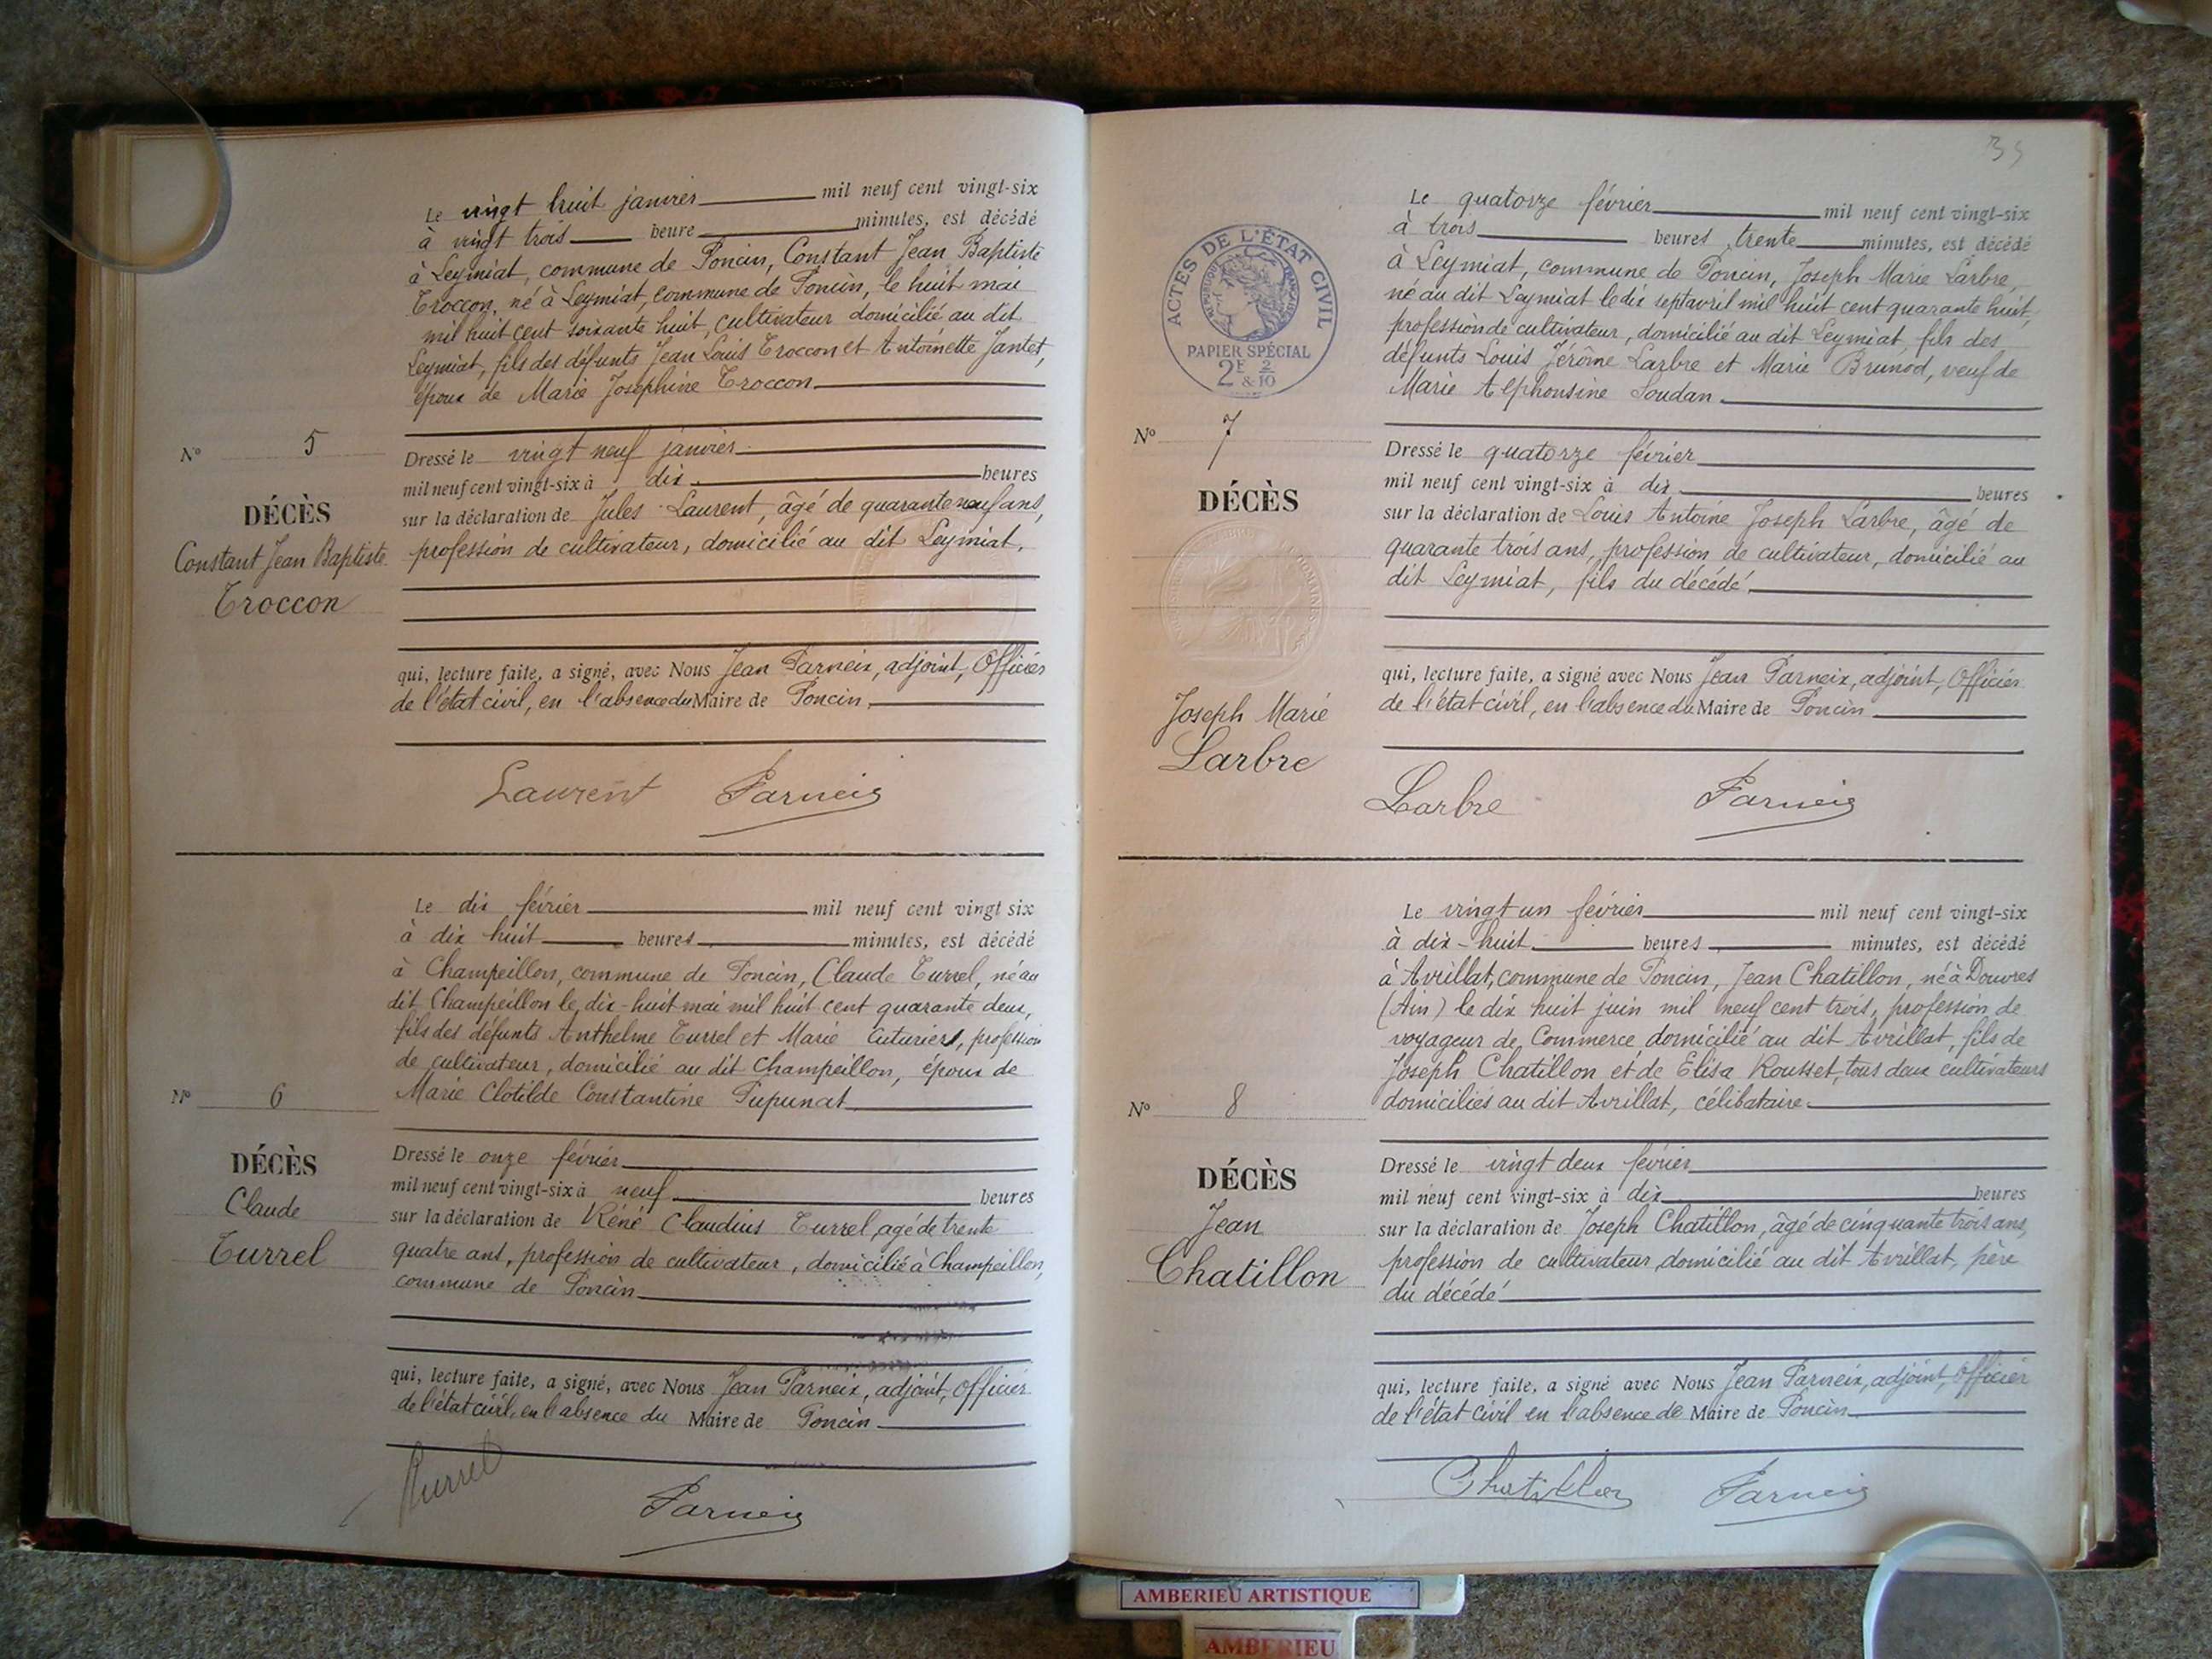 Le vingt huit janvier mil neuf cent vingt-six
à vingt trois heure minutes, est décédé
à Leymiat, commune de Poncin, Constant Jean Baptiste
Troccon, né à Leymiat, commune de Poncin, le huit mai
mil huit cent soixante huit, cultivateur domicilié au dit
Leymiat, fils des défunts Jean Louis Troccon et Antoinette Jantet,
époux de Marie Josephine Troccon
N° 5
DÉCÈS
Constant Jean Baptiste
Troccon
Dressé le vingt neuf janvier
mil neuf cent vingt-six à dix heures
sur la déclaration de Jules Laurent, âgé de quarante neuf ans,
profession de cultivateur, domicilié au dit Leymiat.
qui, lecture faite, a signé, avec Nous Jean Parneix, adjoint, Officier
de l'état civil, en l'absence du Maire de Poncin,
Laurent Parneix
Le dix février mil neuf cent vingt six
à dix huit heures minutes, est décédé
à Champeillon, commune de Poncin, Claude Turrel, né au
dit Champeillon le dix-huit mai mil huit cent quarante deux,
fils des défunts Anthelme Turrel et Marie Cuturier, profession
de cultivateur, domicilié au dit Champeillon, époux de
Marie Clotilde Constantine Pupunat
N° 6
DÉCÈS
Claude
Turrel
Dressé le onze février
mil neuf cent vingt-six à neuf heures
sur la déclaration de Réné Claudius Turrel, agé de trente
quatre ans, profession de cultivateur, domicilié à Champeillon,
commune de Poncin
qui, lecture faite, a signé, avec Nous Jean Parneix, adjoint, Officier
de l'état civil, en l'absence du Maire de Poncin
Turrel
Parneix
35
ACTES DE L'ÉTAT CIVIL
PAPIER SPÉCIAL
2F 2
& 10
Le quatorze février mil neuf cent vingt-six
à trois heures trente minutes, est décédé
à Leymiat, commune de Poncin, Joseph Marie Larbre,
né au dit Leymiat le dix sept avril mil huit cent quarante huit,
profession de cultivateur, domicilié au dit Leymiat, fils des
défunts Louis Jérôme Larbre et Marie Brunod, veuf de
Marie Alphonsine Soudan
N° 7
DÉCÈS
Joseph Marie
Larbre
Dressé le quatorze février
mil neuf cent vingt-six à dix heures
sur la déclaration de Louis Antoine Joseph Larbre, âgé de
quarante trois ans, profession de cultivateur, domicilié au
dit Leymiat, fils du décédé
qui, lecture faite, a signé avec Nous Jean Parneix, adjoint, Officier
de l'état civil, en l'absence du Maire de Poncin
Larbre Parneix
Le vingt un février mil neuf cent vingt-six
à dix-huit heures minutes, est décédé
à Avrillat, commune de Poncin, Jean Chatillon, né à Douvres
(Ain) le dix huit juin mil neuf cent trois, profession de
voyageur de Commerce, domicilié au dit Avrillat, fils de
Joseph Chatillon et de Elisa Rousset, tous deux cultivateurs
domiciliés au dit Avrillat, célibataire
N° 8
DÉCÈS
Jean
Chatillon
Dressé le vingt deux février
mil neuf cent vingt-six à dix heures
sur la déclaration de Joseph Chatillon, âgé de cinquante trois ans,
profession de cultivateur, domicilié au dit Avrillat, père
du décédé
qui, lecture faite, a signé avec Nous Jean Parneix, adjoint, Officier
de l'état civil en l'absence de Maire de Poncin
Chatillon Parneix
AMBERIEU ARTISTIQUE
AMBERIEU